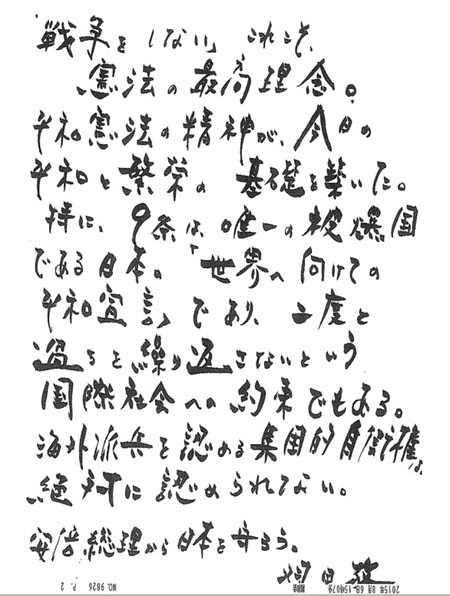 「戦争をしない」これこそ、
憲法の最高理念。
平和憲法の精神が、今日の
平和と繁栄の基礎を築いた。
特に、9条は、唯一の被爆国
である日本の「世界へ向けての
平和宣言」であり、二度と
過ちを繰り返さないという
国際社会への約束でもある。
海外派兵を認める集団的自衛権は、
絶対に認められない。
安倍総理から日本を守ろう。
NO. 9826 P. 2